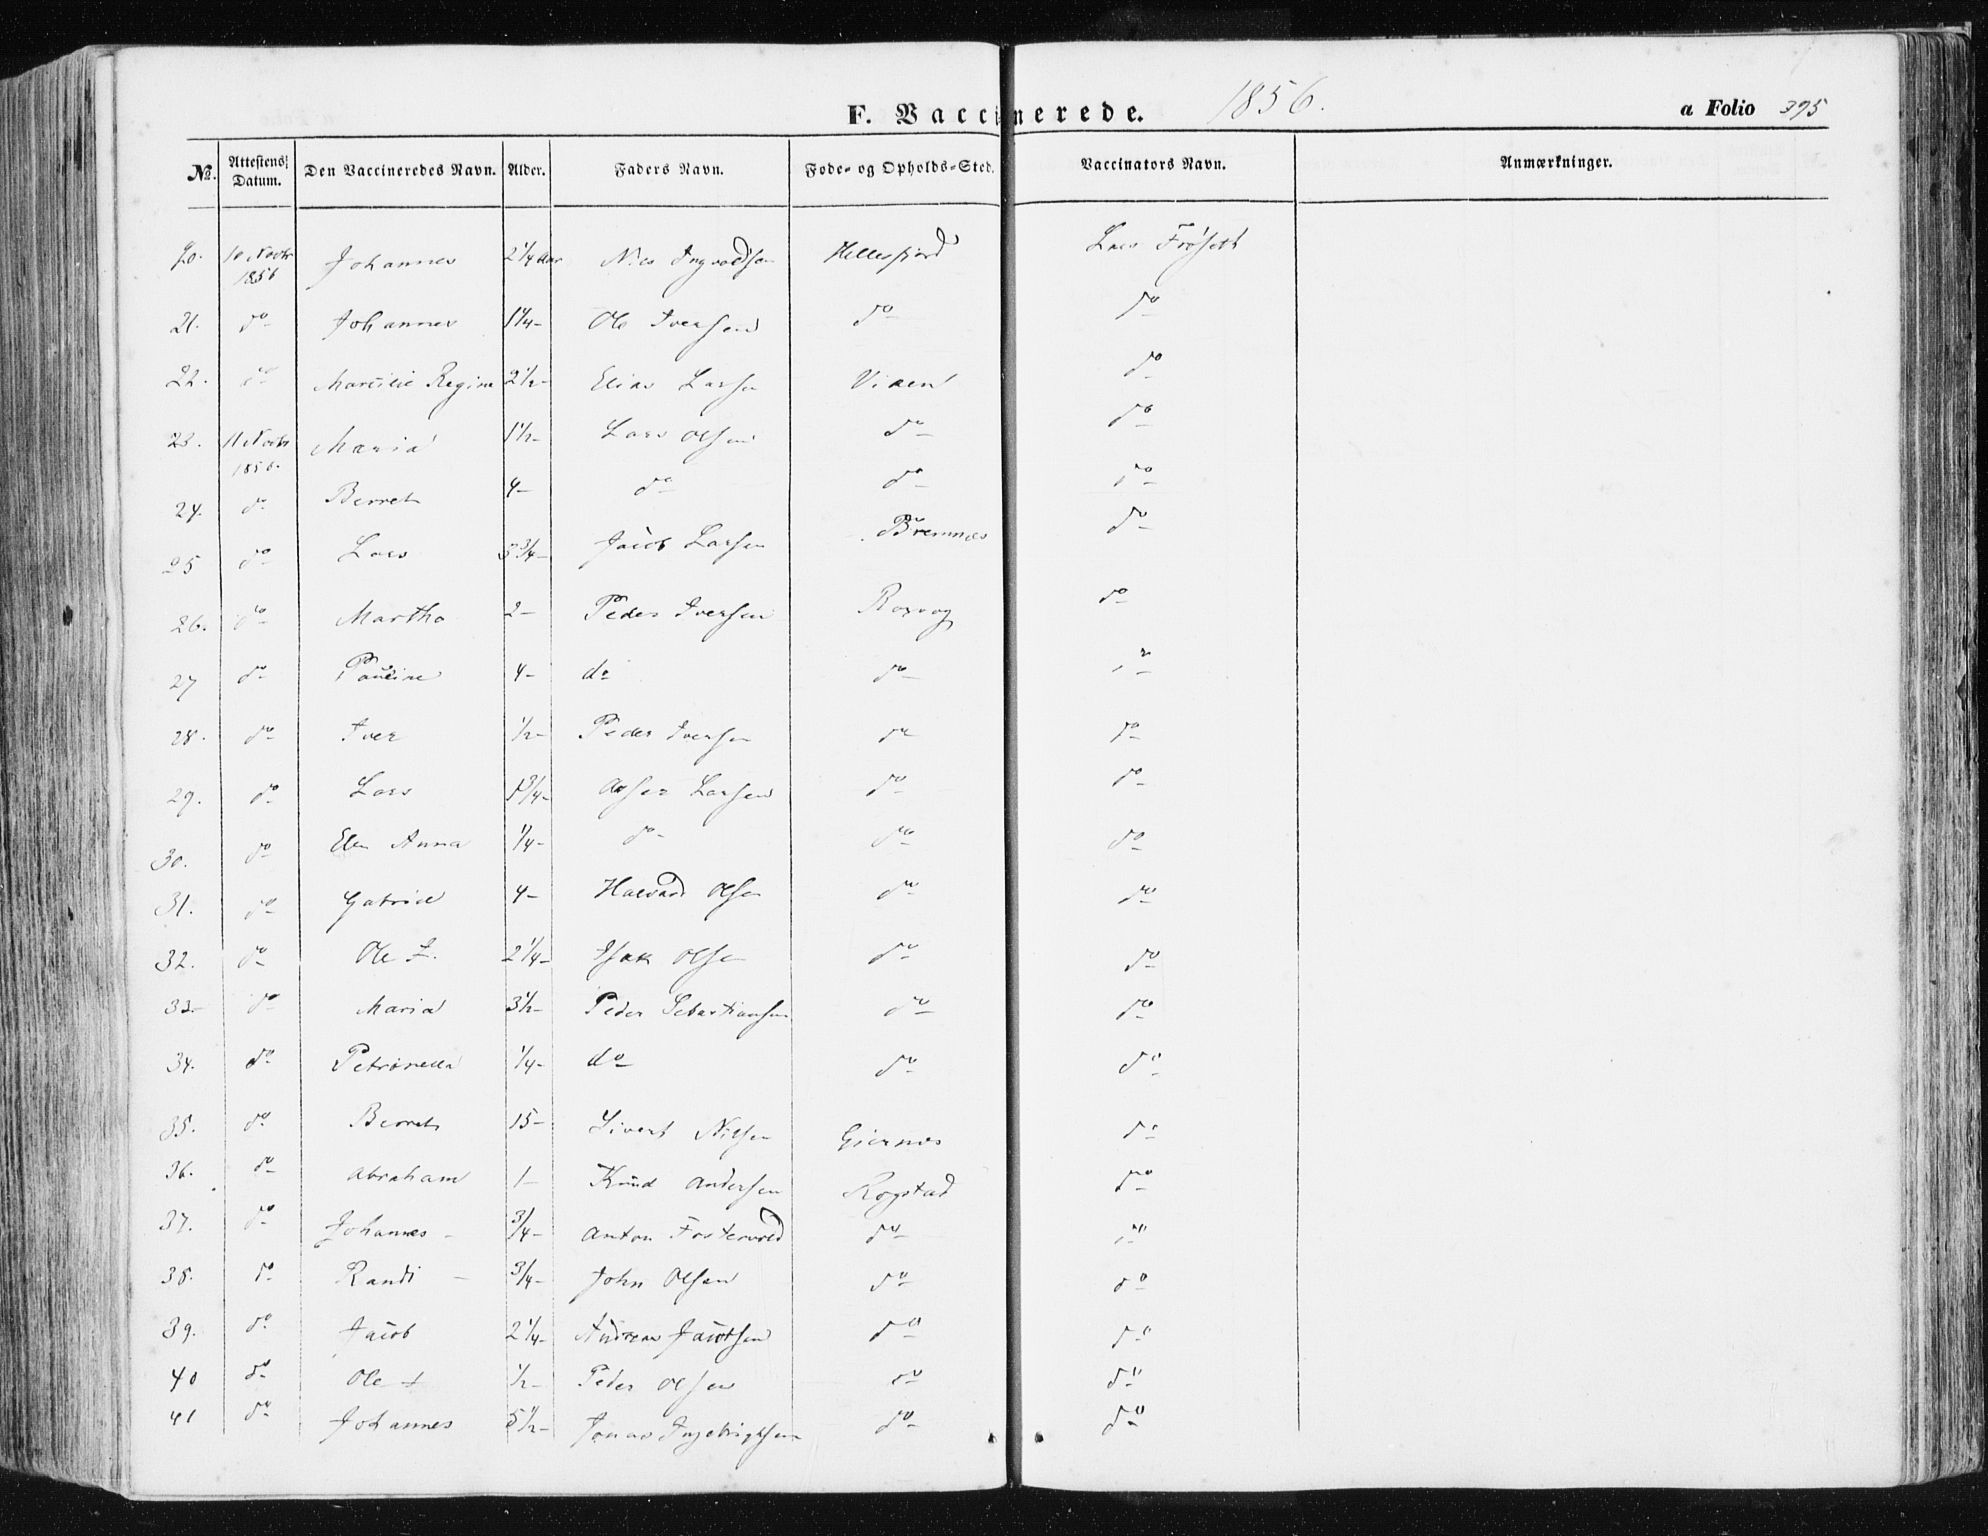 F. Vaccinerede. 1856. a Folio 395
No. Attestens Datum. Den Vaccineredes Navn. Alder. Faders Navn. Føde- og Opholds-Sted. Vaccinators Navn. Anmærkninger.
20. 10 Novbr 1856 Johannes 2 1/4 Aar Nils Ingvaldsen Hellesfjord Lars Frøseth
21. do Johannes 1 1/4 - Ole Iversen do do
22. do Marcilie Regine 2 1/2 - Elias Larsen Vikan do
23. 11 Novbr 1856. Maria 1 1/2 - Lars Olsen do do
24. do Berret 4 - do do do
25 do Lars 3 3/4 - Jacob Larsen Bremnes do
26. do Martha 2 - Peder Iversen Rosvog do
27 do Pauline 4 - do do do
28. do Iver 1/2 - Peder Iversen do do
29. do Lars 1 3/4 - Larsen do do
30. do Elen Anna 1/4 - do do do
31. do Gabriel 4 - Halvard Olsen do do
32. do Ole 2 1/4 - Isak Olsen do do
33 - do Maria 3 1/2 - Peder Sebastiansen do do
34. do Petronella 1/4 - do do do
35. do Berret 15 - Sivert Nilsen Giernes do
36. do Abraham 1 - Knud Andersen Rogstad do
37. do Johannes - 3/4 - Anton Fostervold do do
38. do Randi - 3/4 - John Olsen do do
39. do Jacob 2 1/4 - Andreas Jacobsen do do
40 do Ole 1/2 - Peder Olsen do do
41 do Johannes 5 1/2 - Jonas Ingebrigtsen do do